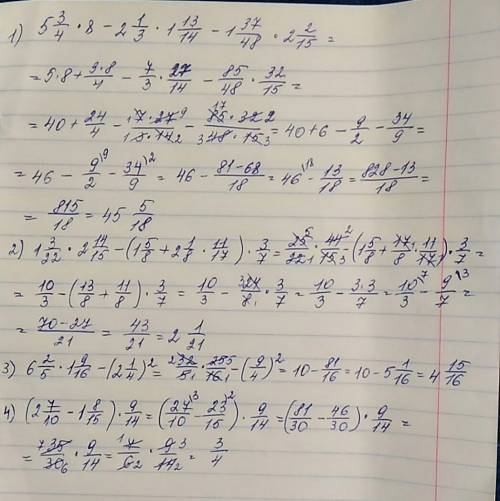 1) 5 3/4 · 8 - 2 1/3 · 1 13/14 - 1 37/48 · 2 2/15 =
= 5·8 + 3·8/4 - 7/3 · 27/14 - 85/48 · 32/15 =
= 40 + 24/4 - 7·27/3·14 - 85·32/48·15 = 40 + 6 - 9/2 - 34/9 =
= 46 - 9/2 - 34/9 = 46 - 81-68/18 = 46 - 13/18 = 828-13/18 =
= 815/18 = 45 5/18
2) 1 3/22 · 2 14/15 - (1 5/8 + 2 1/8 · 11/17) · 3/7 = 25/22 · 44/15 - (1 5/8 + 17/8 · 11/17) · 3/7 =
= 10/3 - (13/8 + 11/8) · 3/7 = 10/3 - 24/8 · 3/7 = 10/3 - 3·3/7 = 10/3 - 9/7 =
= 70-27/21 = 43/21 = 2 1/21
3) 6 2/5 · 1 9/16 - (2 1/4)² = 32/5 · 25/16 - (9/4)² = 10 - 81/16 = 10 - 5 1/16 = 4 15/16
4) (2 7/10 - 1 8/15) · 9/14 = (27/10 - 23/15) · 9/14 = (81/30 - 46/30) · 9/14 =
= 35/30 · 9/14 = 7/6 · 9/14 = 3/4